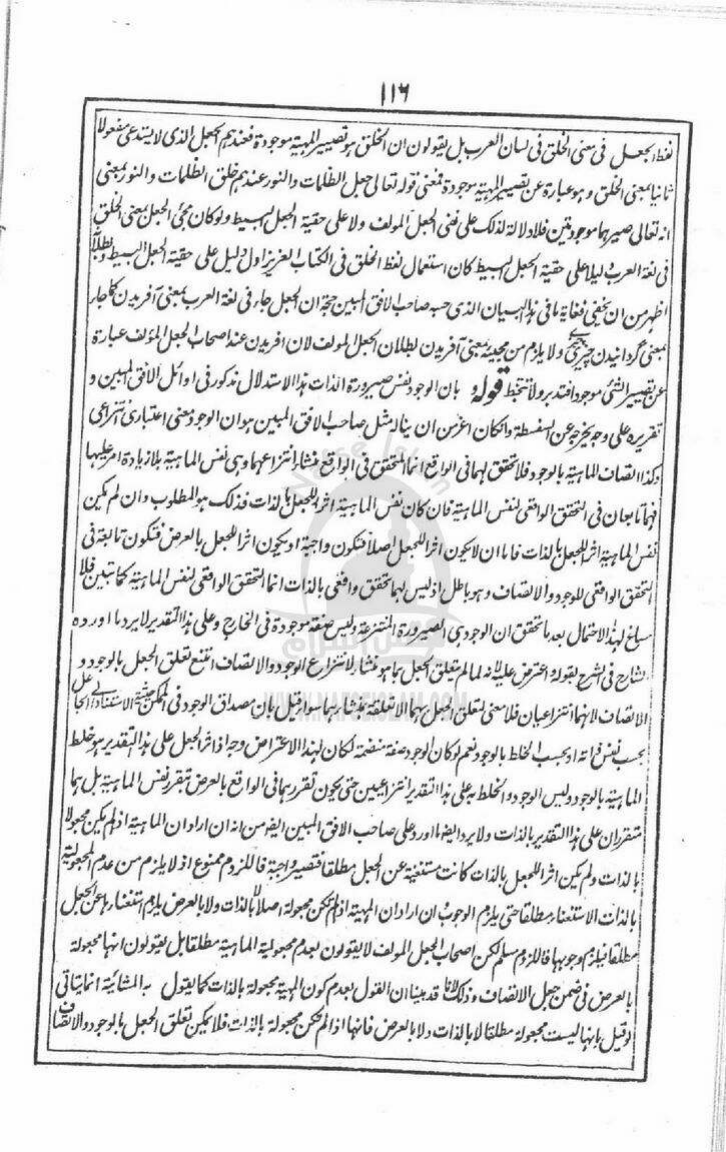 ١١٦
لفظ الجعل فى معنى الخلق فى لسان العرب بل يقولون ان الخلق هو تصيير المهية موجودة فعندهم الجعل الذى لا يستدعى مفعولا
ثانيا بمعنى الخلق وهو عبارة عن تصيير المهية موجودة فمعنى قوله تعالى جعل الظلمات والنور عندهم خلق الظلمات والنور بمعنى
انه تعالى صيرهما موجودتين فلا دلالة لذلك على نفى الجعل المولف ولا على حقية الجعل البسيط ولو كان مجئ الجعل بمعنى الخلق
فى لغة العرب دليلا على حقية الجعل البسيط كان استعمال لفظ الخلق فى الكتاب العزيز اول دليل على حقية الجعل البسيط وبطلانه
اظهر من ان يخفى افغاية ما فى هذا البيان الذى حسبه صاحب الافق المبين حجة ان الجعل جاء فى لغة العرب بمعنى آفريدن كما جاء
بمعنى گردانيدن چيزى چيزى ولا يلزم من مجيئه بمعنى آفريدن بطلان الجعل المولف لان آفريدن عند اصحاب الجعل المؤلف عبارة
عن تصيير الشئ موجودا فتدبر ولا تخبط قوله بان الوجود نفس صيرورة الذات هذا الاستدلال مذكور فى اوائل الافق المبين و
تقريره على وجه يخرجه عن السفسطة وان كان اعز من ان يناله مثل صاحب الافق المبين هو ان الوجود معنى اعتبارى انتزاعى
وكذا اتصاف الماهية بالوجود فلا تحقق لهما فى الواقع انما المتحقق فى الواقع منشأ انتزاعهما وهى نفس الماهية بلا زيادة امر عليها
فهما تابعان فى التحقق الواقعى لنفس الماهية فان كان نفس الماهية اثرا للجعل بالذات فذلك هو المطلوب وان لم يكن
نفس الماهية اثر للجعل بالذات فاما ان لا يكون اثر للجعل اصلا فتكون واجبة او يكون اثرا للجعل بالعرض فتكون تابعة فى
التحقق الواقعى للوجود والاتصاف وهو باطل اذ ليس لهما تحقق واقعى بالذات انما التحقق الواقعى لنفس الماهية كما تبين فلا
مساغ لهذا الاحتمال بعد ما تحقق ان الوجود هى الصيرورة المنتزعة وليس صفة موجودة فى الخارج وعلى هذا التقدير لا يرد ما اورده
الشارح فى الشرح بقوله اعترض عليه لانه لما لم يتعلق الجعل بما هو منشأ لانتزاع الوجود والاتصاف امتنع تعلق الجعل بالوجود و
الاتصاف لانهما انتزاعيان فلا معنى لتعلق الجعل بهما الا تعلقه بمنشأهما سواء قيل بان مصداق الوجود فى الممكن حيثية الاستناد الى الجاعل
بحسب نفس ذاته او بحسب الخلط بالوجود نعم لو كان الوجود صفة منضمة لكان لهذا الاعتراض وجه اذ اثر الجعل على هذا التقدير هو خلط
الماهية بالوجود وليس الوجود والخلط به على هذا التقدير انتزاعيين حتى يكون تقررهما فى الواقع بالعرض تبقرر نفس الماهية بل هما
متقرران على هذا التقدير بالذات ولا يرد ايضا ما اورد على صاحب الافق المبين ايضا من انه ان اراد ان الماهية اذا لم يكن مجعولا
بالذات ولم يكن اثرا للجعل بالذات كانت مستغنية عن الجعل مطلقا فتصير واجبة فاللزوم ممنوع اذ لا يلزم من عدم المجعولية
بالذات الاستغناء مطلقا حتى يلزم الوجوب ان اراد ان المهية اذا لم تكن مجعولة اصلا لا بالذات ولا بالعرض يلزم استغناءها عن الجعل
مطلقا فيلزم وجوبها فاللزوم مسلم لكن اصحاب الجعل المولف لا يقولون بعدم مجعولية الماهية مطلقا بل يقولون انها مجعولة
بالعرض فى ضمن جعل الاتصاف وذلك لانا قد بينا ان القول بعدم كون المهية مجعولة بالذات كما يقول به المشائية انما يتاتى
لو قيل بانها ليست مجعولة مطلقا لا بالذات ولا بالعرض فانها اذا لم تكن مجعولة بالذات فلا يمكن تعلق الجعل بالوجود والاتصاف
WWW.NAFSEISLAM.COM